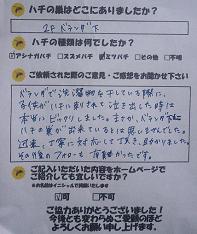 ハチの巣はどこにありましたか？
2F ベランダ下
ハチの種類は何でしたか？
アシナガバチ □スズメバチ ミツバチ □その他 □不明
ご依頼された際のご意見・ご感想をお聞かせ下さい
ベランダで洗濯物を干している際に、
子供がハチに刺されて泣き出した時は
本当にビックリしました。まさか、ベランダ下に
ハチの巣が出来ているとは思いませんでした。
迅速、丁寧に対応して頂き、助かりました。
その後のフォローも
ご記入いただいた内容をホームページで
ご紹介しても宜しいですか？
※お名前はイニシャルで掲載いたします
可 □不可
ご協力ありがとうございました！
今後とも変わらぬご愛顧のほど
よろしくお願い申し上げます。